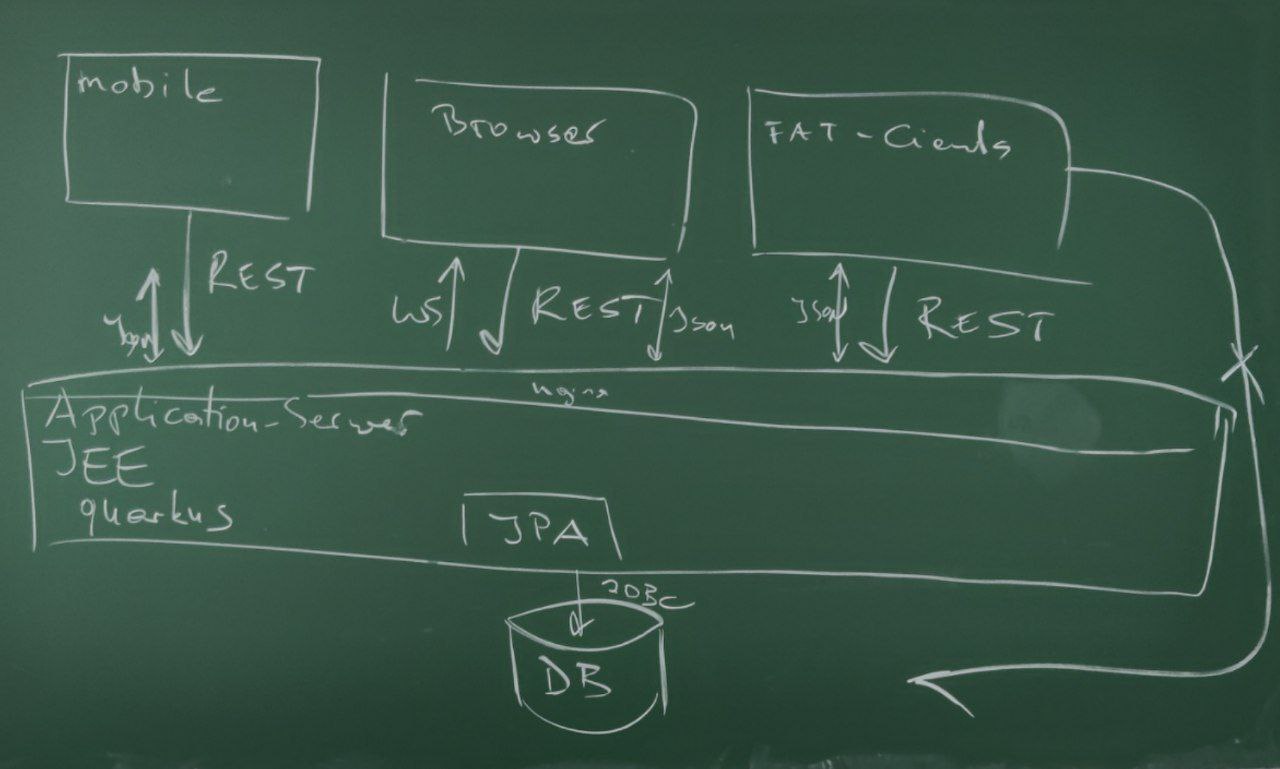 mobile
Browser
FAT-Cients
REST
Json
WS
REST
Json
Json
REST
nginx
Application-Server
JEE
quarkus
JPA
JDBC
DB